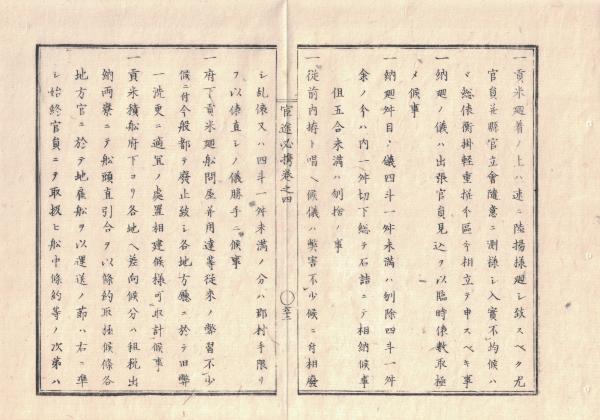 一貢米廻着ノ上ハ速ニ陸揚様廻シ致スベク尤
官員並縣官立會隨意ニ測様シ入實不均候ハ
マ総俵衡掛軽重撰分區々相立テ申スベキ事
一納廻ノ儀ハ出張官員見込ヲ以臨時俵數取極
メ候事
一納廻舛目ノ儀四斗一舛未満ハ刎除四斗一舛
余ノ分ハ内一舛切下総テ石詰ニテ相納候事
但五合未満ハ刎捨ノ事
一従前内持ト唱ヘ候儀ハ弊害不少候ニ付相廢
官途必携巻之四
シ乱俵又ハ四斗一舛未満ノ分ハ郡村手限リ
ヲ以俵直シノ儀勝手ニ候事
一府下貢米廻舩問屋并用達等従来ノ弊習不少
候ニ付今般都テ廢止致シ各地方廳ニ於テ旧弊
一洗更ニ適宜ノ處置相建候様可取計候事
一貢米積舩府下ヨリ各地ヘ差向候分ハ租税出
納両寮ニテ舩頭直引合ヲ以條約取極候條各
地方官ニ於テ地雇舩ヲ以運送ノ節ハ右ニ準
シ始終官員ニテ取扱ヒ舩中條約等ノ次第ハ